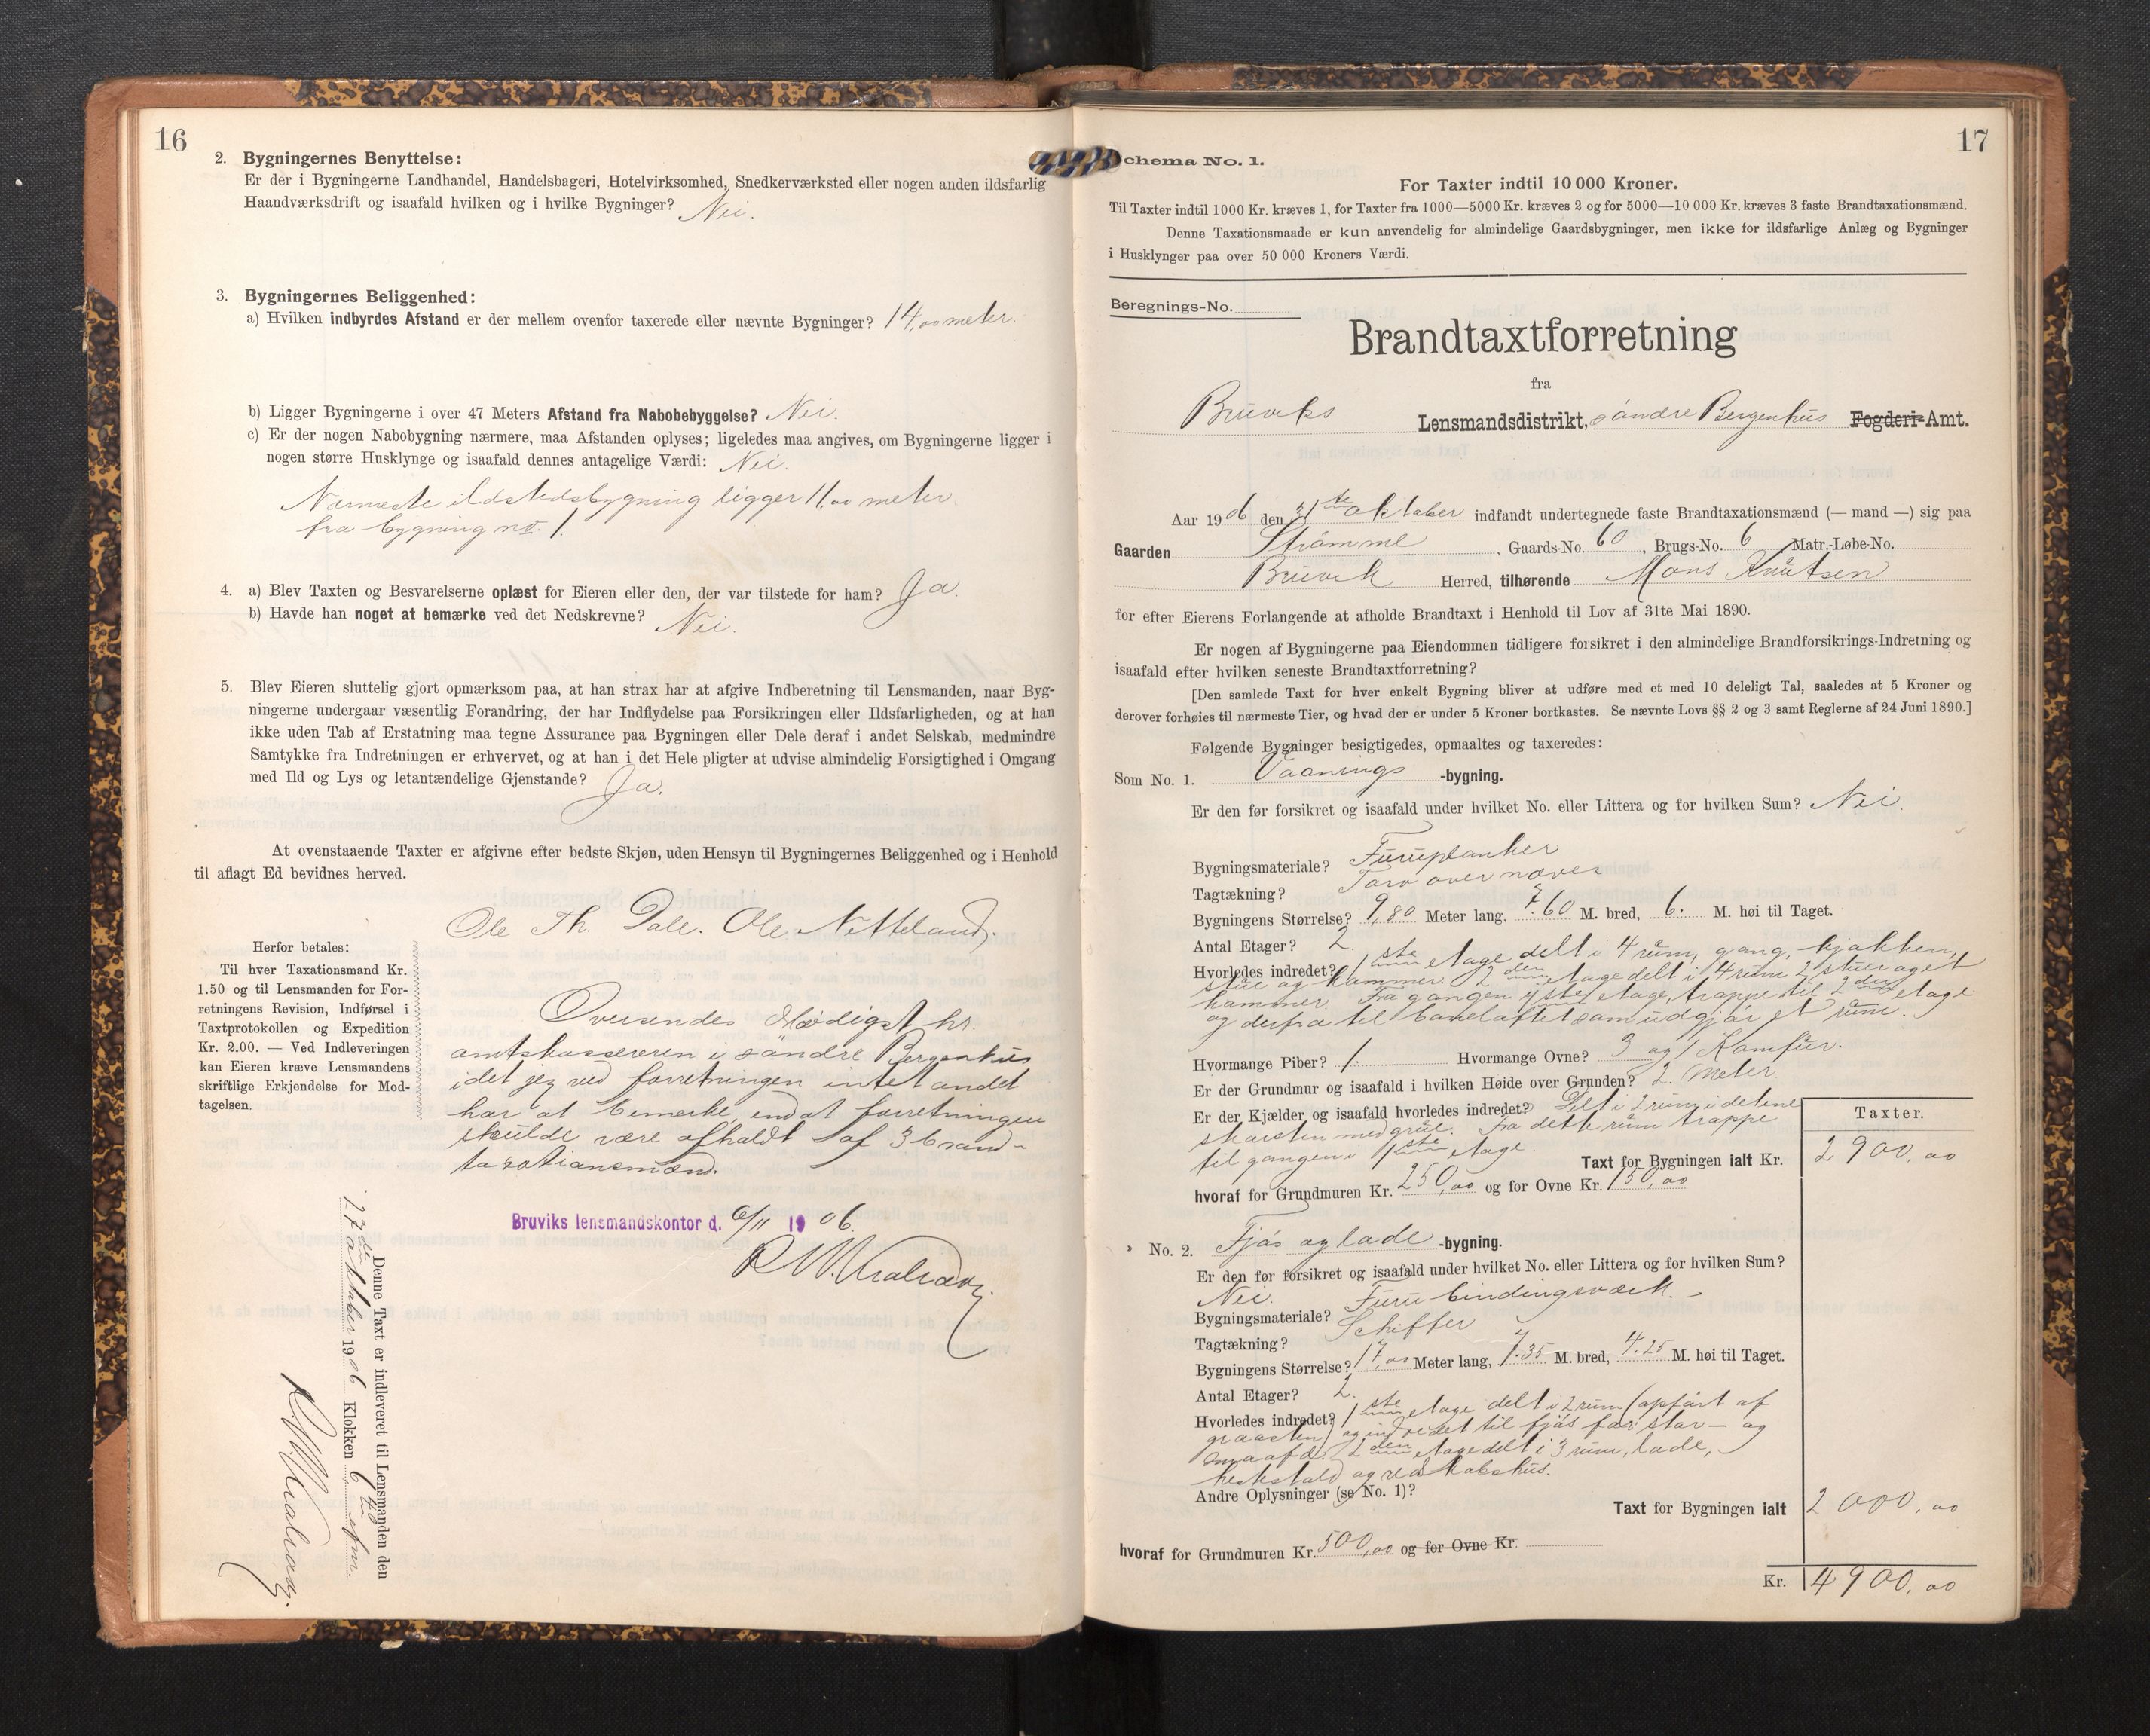 16
2. Bygningernes Benyttelse:
Er der i Bygningerne Landhandel, Handelsbageri, Hotelvirksomhed, Snedkerværksted eller nogen anden ildsfarlig
Haandværksdrift og isaafald hvilken og i hvilke Bygninger? Nei.
3. Bygningernes Beliggenhed:
a) Hvilken indbyrdes Afstand er der mellem ovenfor taxerede eller nævnte Bygninger? 14,00 meter.
b) Ligger Bygningerne i over 47 Meters Afstand fra Nabobebyggelse? Nei.
c) Er der nogen Nabobygning nærmere, maa Afstanden oplyses; ligeledes maa angives, om Bygningerne ligger i
nogen større Husklynge og isaafald dennes antagelige Værdi: Nei.
Nærmeste ildstedsbygning ligger 11,00 meter
fra bygning no. 1.
4. a) Blev Taxten og Besvarelserne oplæst for Eieren eller den, der var tilstede for ham? Ja.
b) Havde han noget at bemærke ved det Nedskrevne? Nei.
5. Blev Eieren sluttelig gjort opmærksom paa, at han strax har at afgive Indberetning til Lensmanden, naar Byg-
ningerne undergaar væsentlig Forandring, der har Indflydelse paa Forsikringen eller Ildsfarligheden, og at han
ikke uden Tab af Erstatning maa tegne Assurance paa Bygningen eller Dele deraf i andet Selskab, medmindre
Samtykke fra Indretningen er erhvervet, og at han i det Hele pligter at udvise almindelig Forsigtighed i Omgang
med Ild og Lys og letantændelige Gjenstande? Ja.
At ovenstaaende Taxter er afgivne efter bedste Skjøn, uden Hensyn til Bygningernes Beliggenhed og i Henhold
til aflagt Ed bevidnes herved.
Ole Th. Dale. Ole Netteland.
Herfor betales:
Til hver Taxationsmand Kr.
1.50 og til Lensmanden for For-
retningens Revision, Indførsel i
Taxtprotokollen og Expedition
Kr. 2.00. — Ved Indleveringen
kan Eieren kræve Lensmandens
skriftlige Erkjendelse for Mod-
tagelsen.
Oversendes ædigst hr.
amtskassereren i søndre Bergenhus
idet jeg ved forretningen intet andet
har at bemerke, end at forretningen
skulde være afholdt af 3 brand-
taxationsmænd.
Bruviks lensmandskontor d. 6/11 1906.
Denne Taxt er indleveret til Lensmanden den
27de oktober 1906 Klokken 6 efm.
17
Schema No. 1.
For Taxter indtil 10 000 Kroner.
Til Taxter indtil 1000 Kr. kræves 1, for Taxter fra 1000—5000 Kr. kræves 2 og for 5000—10 000 Kr. kræves 3 faste Brandtaxationsmænd.
Denne Taxationsmaade er kun anvendelig for almindelige Gaardsbygninger, men ikke for ildsfarlige Anlæg og Bygninger
i Husklynger paa over 50 000 Kroners Værdi.
Beregnings-No.
Brandtaxtforretning
fra
Bruviks Lensmandsdistrikt, søndre Bergenhus Fogderi-Amt.
Aar 1906 den 31te oktober indfandt undertegnede faste Brandtaxationsmænd (— mand —) sig paa
Gaarden Strømme, Gaards-No. 60, Brugs-No. 6 Matr.-Løbe-No.
Bruvik Herred, tilhørende Mons Knutsen
for efter Eierens Forlangende at afholde Brandtaxt i Henhold til Lov af 31te Mai 1890.
Er nogen af Bygningerne paa Eiendommen tidligere forsikret i den almindelige Brandforsikrings-Indretning og
isaafald efter hvilken seneste Brandtaxtforretning?
[Den samlede Taxt for hver enkelt Bygning bliver at udføre med et med 10 deleligt Tal, saaledes at 5 Kroner og
derover forhøies til nærmeste Tier, og hvad der er under 5 Kroner bortkastes. Se nævnte Lovs §§ 2 og 3 samt Reglerne af 24 Juni 1890.]
Følgende Bygninger besigtigedes, opmaaltes og taxeredes:
Som No. 1. Vaanings-bygning.
Er den før forsikret og isaafald under hvilket No. eller Littera og for hvilken Sum? Nei.
Bygningsmateriale? Furuplanker
Tagtækning? Torv over næver
Bygningens Størrelse? 9,80 Meter lang, 7.60 M. bred, 6. M. høi til Taget.
Antal Etager? 2.
Hvorledes indredet? 1ste etage delt i 4 rum, gang, kjøkken,
stue og kammer. 2den etage delt i 4 rum 2 stuer og et
kammer. Fra gangen i 1ste etage, trappe til 2den etage
og derfra til bakeloftet som udgjør et rum.
Hvormange Piber? 1. Hvormange Ovne? 3 og 1 Komfur.
Er der Grundmur og isaafald i hvilken Høide over Grunden? 2. meter
Er der Kjælder og isaafald hvorledes indredet? Delt i 2 rum i det ene
skorsten med grue. Fra dette rum trappe
til gangen i 1ste etage.
Taxter.
Taxt for Bygningen ialt Kr. 2900,00
hvoraf for Grundmuren Kr. 250,00 og for Ovne Kr. 150,00
No. 2. Fjøs og lade-bygning.
Er den før forsikret og isaafald under hvilket No. eller Littera og for hvilken Sum?
Nei.
Bygningsmateriale? Furu bindingsværk.
Tagtækning? Schiffer
Bygningens Størrelse? 17,00 Meter lang, 7.35 M. bred, 4.25 M. høi til Taget.
Antal Etager? 2.
Hvorledes indredet? 1ste etage delt i 2 rum (opført af
graasten) og indredet til fjøs for stor- og
smaafæ. 2den etage delt i 3 rum, lade,
hestestald og redskabshus.
Andre Oplysninger (se No. 1)?
Taxt for Bygningen ialt 2000,00
hvoraf for Grundmuren Kr. 500,00 og for Ovne Kr.
Kr. 4900,00